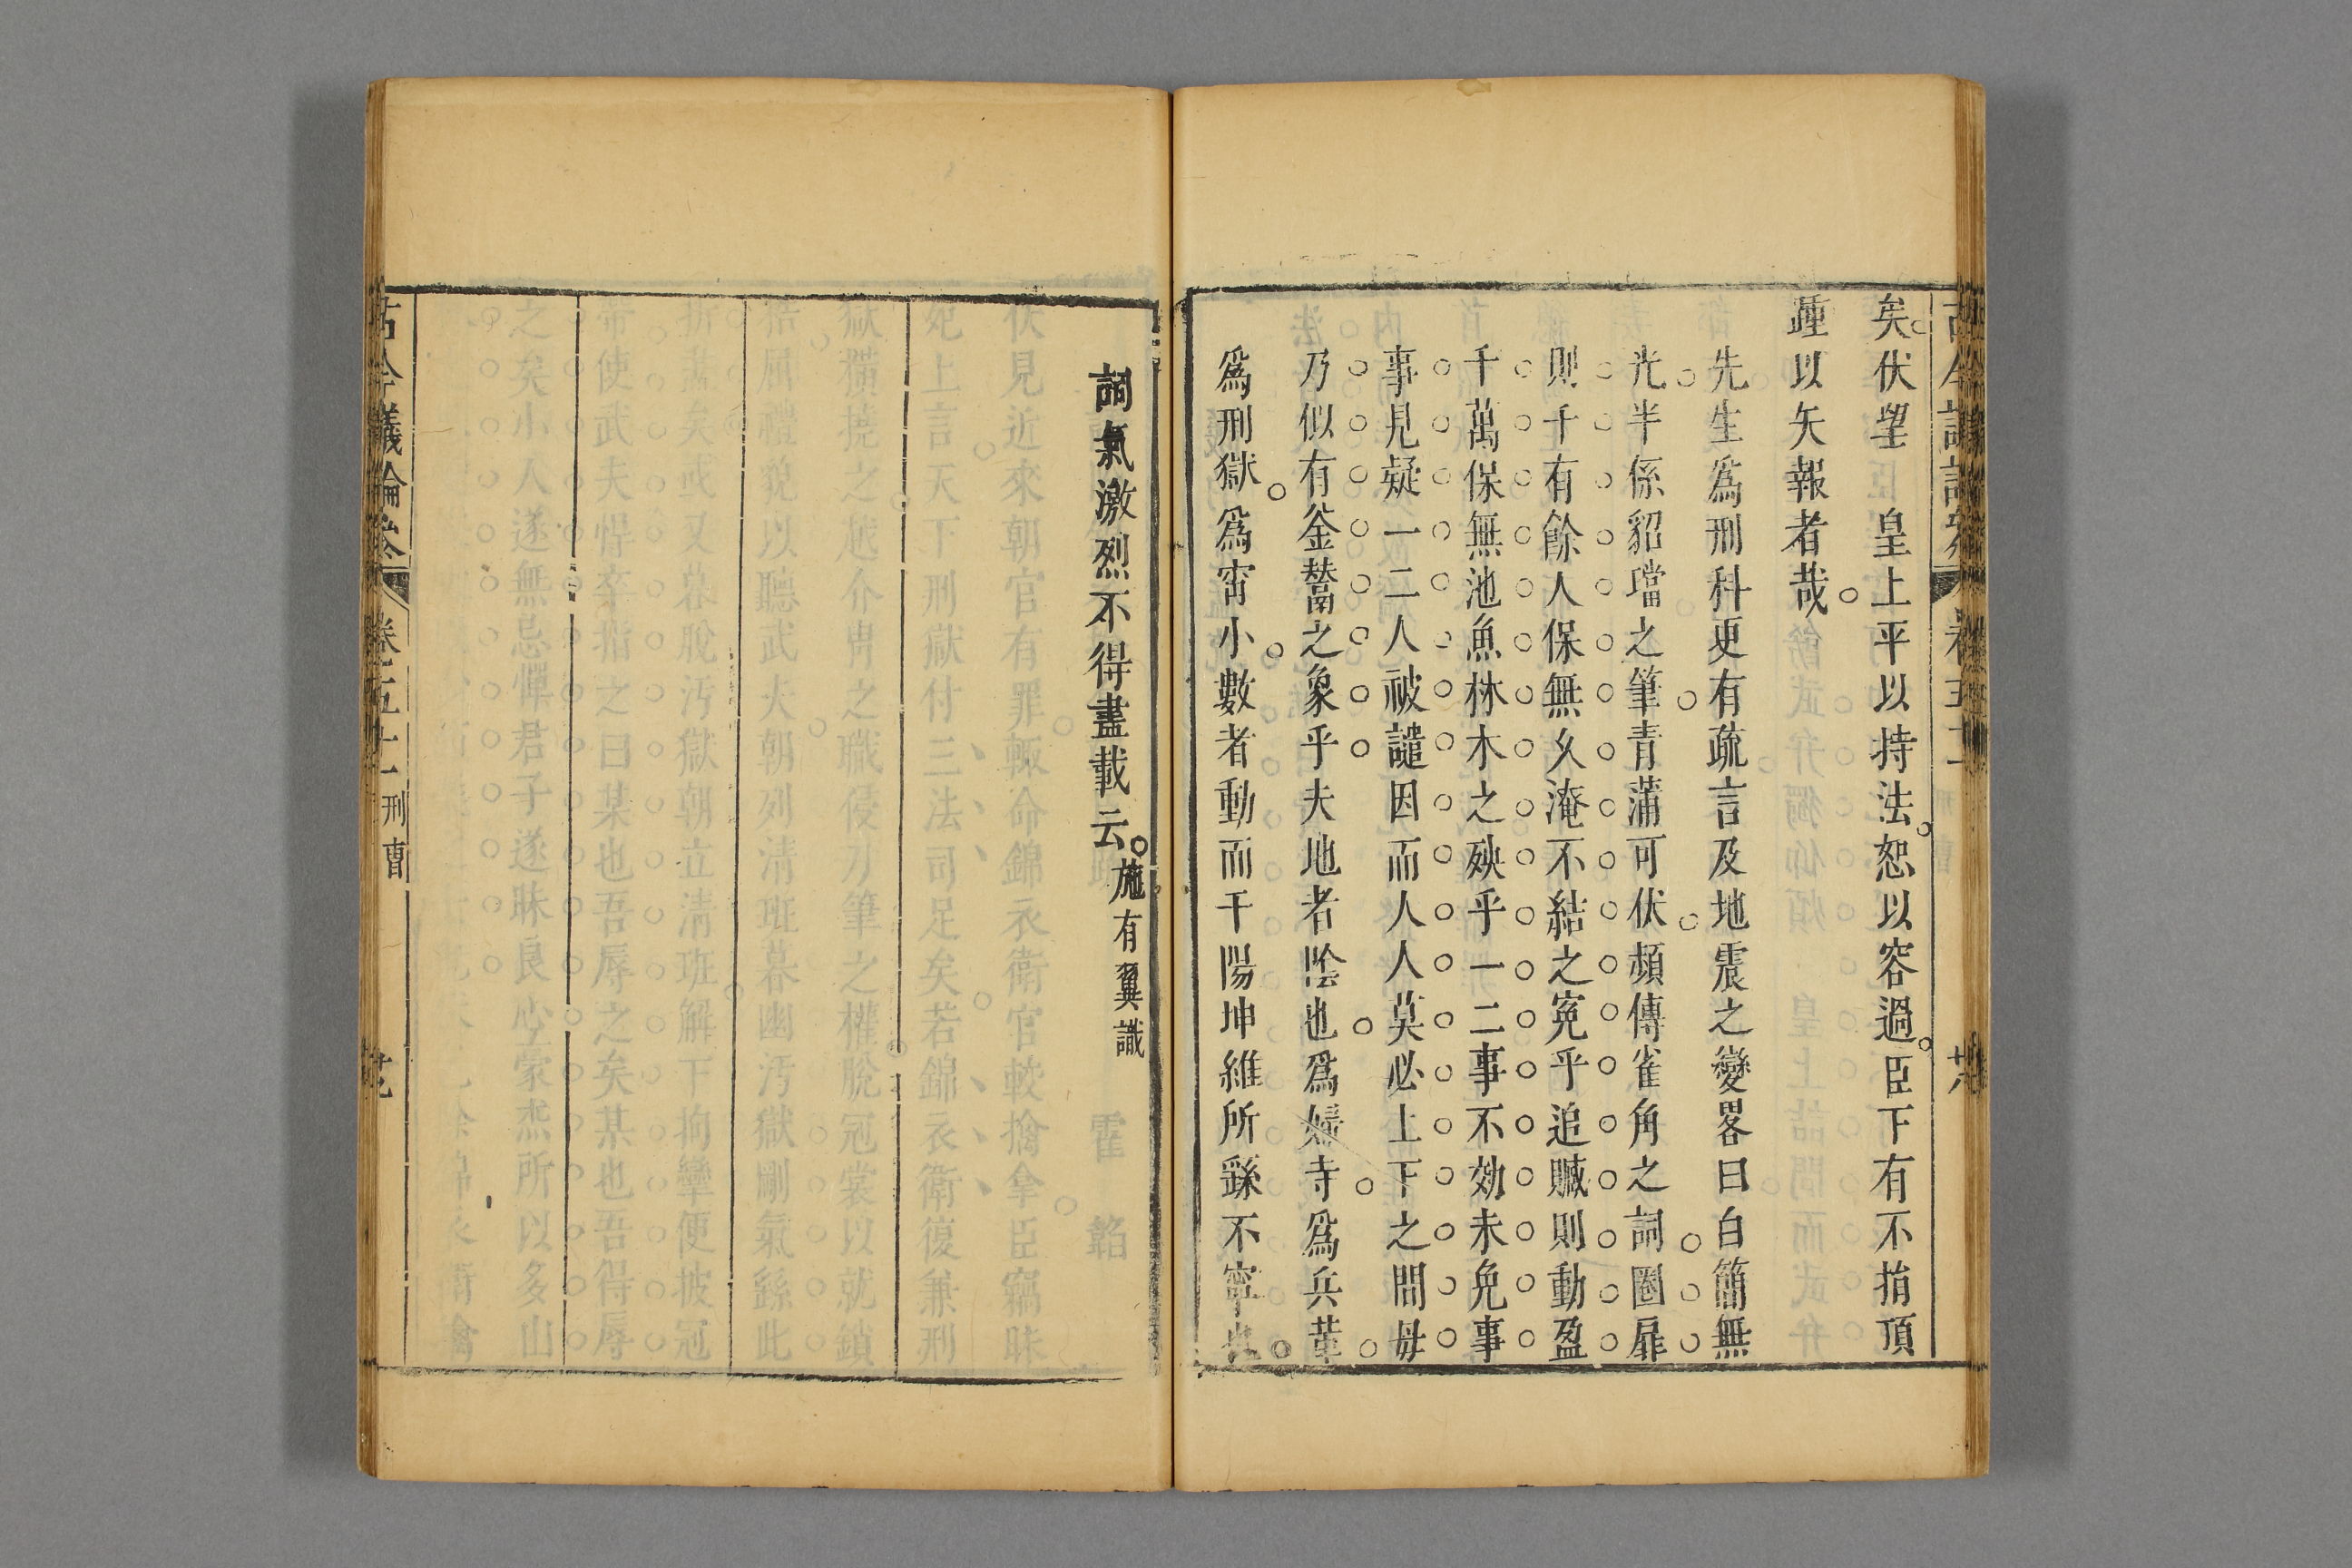 矣伏望　皇上平以持法恕以容過臣下有不捐頂
踵以矢報者哉
先生爲刑科更有疏言及地震之變畧曰白簡無
光半係貂璫之筆青蒲可伏頻傳雀角之詞圜扉
則千有餘人保無久淹不結之寃乎追贓則動盈
千萬保無池魚林木之殃乎一二事不効未免事
事見疑一二人被譴因而人人莫必上下之間毋
乃似有釜鬵之象乎夫地者陰也爲婦寺爲兵革
爲刑獄爲宵小數者動而干陽坤維所繇不寧也
詞氣激烈不得盡載云施有翼識
古今議論叅　卷五十一　刑曹